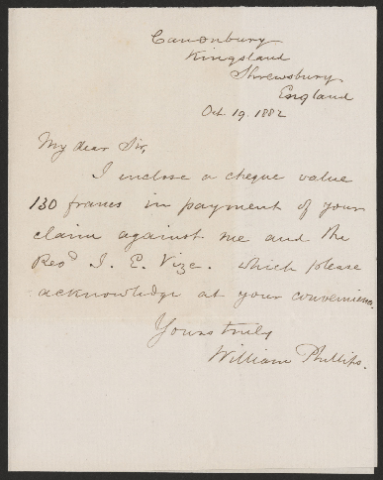 Canonbury
Kingsland
Shrewsbury
England
Oct 19. 1882
My dear Sir,
I inclose a cheque value
130 francs in payment of your
claim against me and the
Revd J. E. Vize. which please
acknowledge at your convenience.
Yours truly
William Phillips.